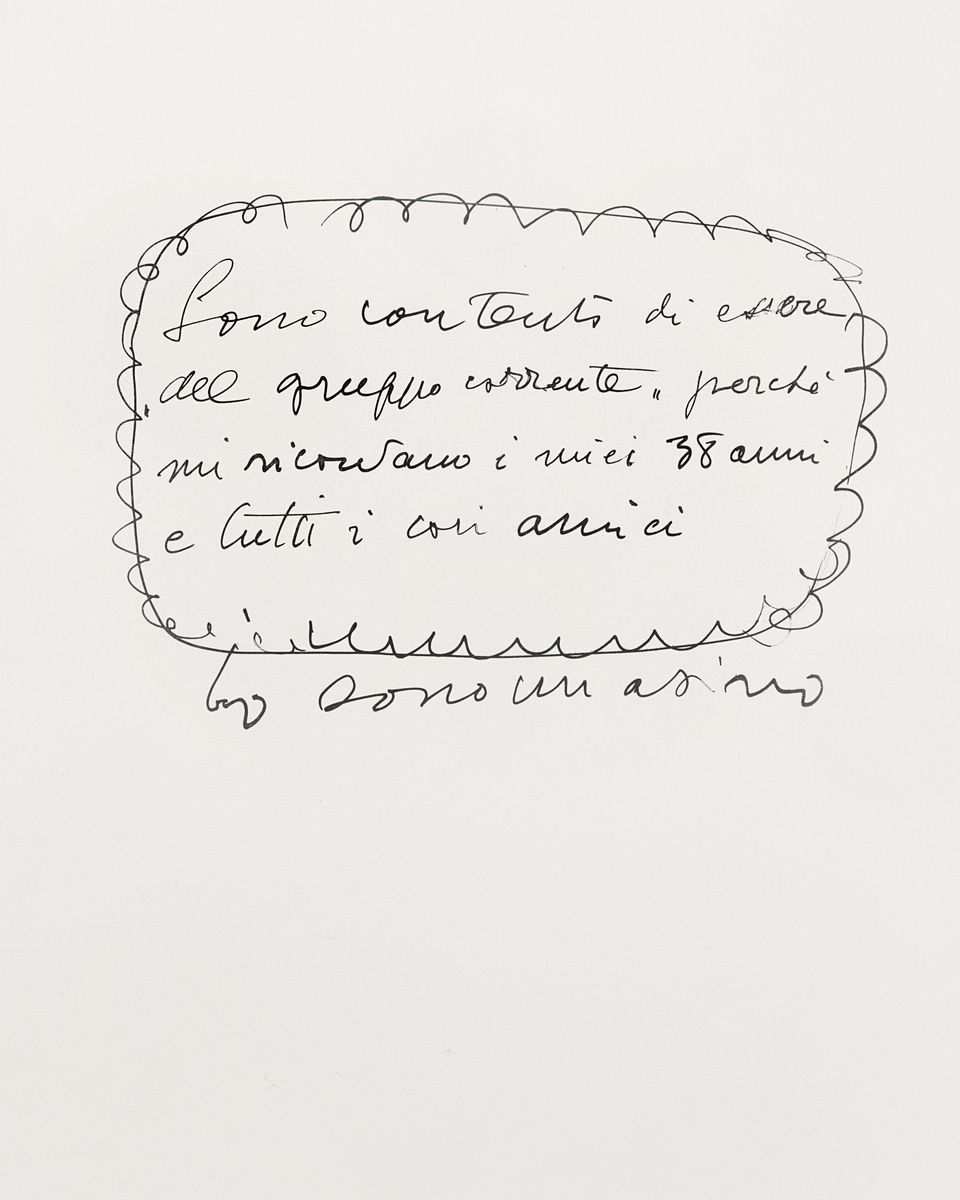 Sono contento di essere
„del gruppo corrente„ perché
mi ricordano i miei 38 anni
e tutti i cari amici
sono un asino